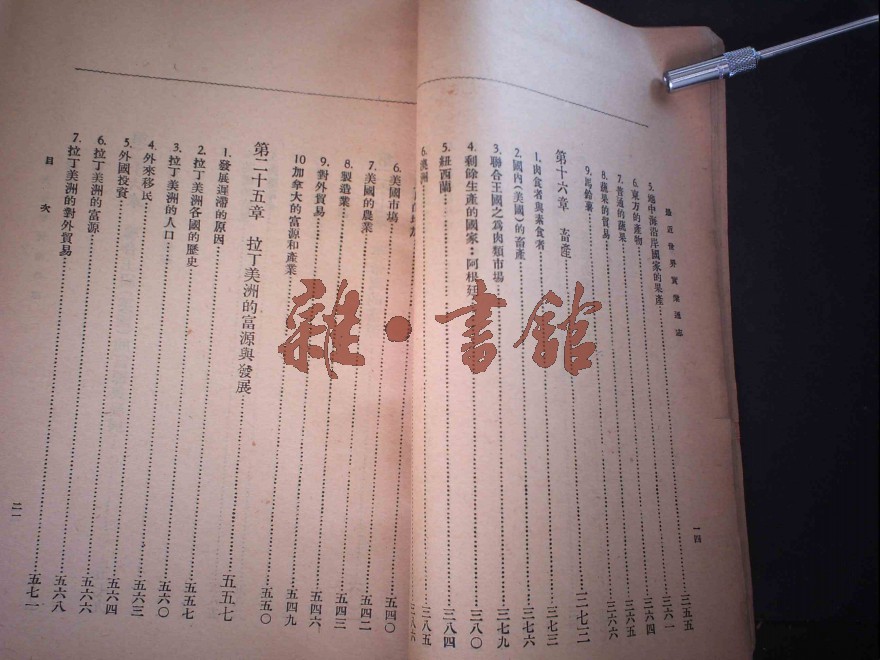 最近世界實業通志
一四
5. 地中海沿岸國家的果產 三五五
6. 東方的產物 三六一
7. 普通的蔬果 三六四
8. 蔬果的貿易 三六五
9. 馬鈴薯 三六六
第十六章 畜產 三七三
1. 肉食者與素食者 三七三
2. 國內（美國）的畜產 三七六
3. 聯合王國之爲肉類市場 三七九
4. 剩餘生產的國家：阿根廷 三八〇
5. 紐西蘭 三八四
6. 澳洲 三八五
三八六
6. 美國市場 五四〇
7. 美國的農業 五四二
8. 製造業 五四三
9. 對外貿易 五四六
10 加拿大的富源和產業 五四九
五五〇
第二十五章 拉丁美洲的富源與發展 五五七
1. 發展遲滯的原因
2. 拉丁美洲各國的歷史 五五七
3. 拉丁美洲的人口 五六〇
4. 外來移民 五六三
5. 外國投資 五六四
6. 拉丁美洲的富源 五六六
7. 拉丁美洲的對外貿易 五六八
五七一
目次
二一
雜·書館